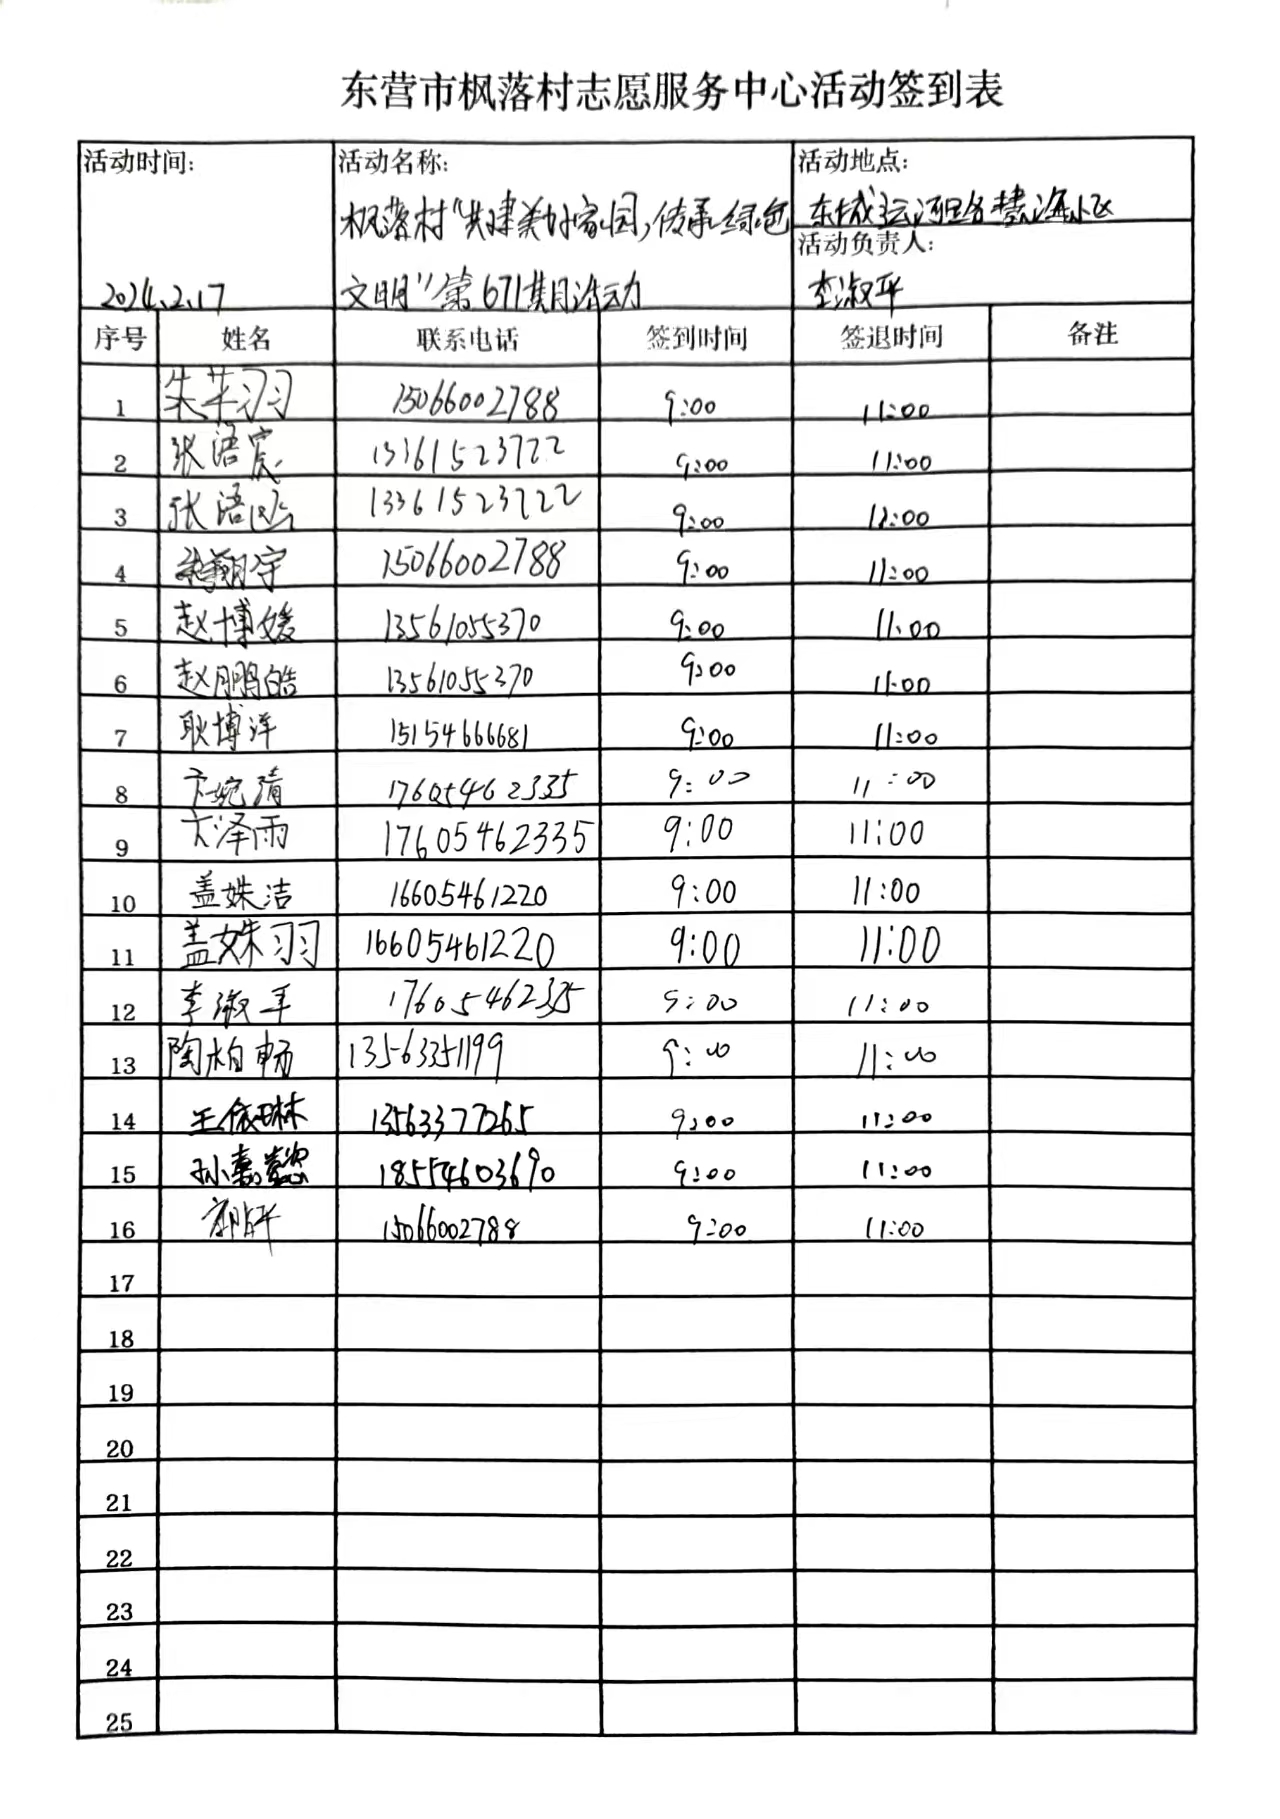 东营市枫落村志愿服务中心活动签到表
活动时间: 活动名称: 活动地点:
枫落村“共建美好家园,传承绿色 东城运河路慧海小区
活动负责人:
2024.2.17 文明”第671期活动 李淑平
序号 姓名 联系电话 签到时间 签退时间 备注
1 朱芊羽 15066002788 9:00 11:00
2 张语宸 13361523722 9:00 11:00
3 张语 13361523722 9:00 11:00
4 翔宇 15066002788 9:00 11:00
5 赵博媛 13561055370 9:00 11:00
6 赵鹏皓 13561055370 9:00 11:00
7 耿博洋 15154666681 9:00 11:00
8 卞婉清 17605462335 9:00 11:00
9 卞泽雨 17605462335 9:00 11:00
10 盖姝洁 16605461220 9:00 11:00
11 盖姝羽 16605461220 9:00 11:00
12 李淑平 17605462335 9:00 11:00
13 陶柏畅 13563351199 9:00 11:00
14 王依琳 13563377265 9:00 11:00
15 孙嘉懿 18554603690 9:00 11:00
16 15066002788 9:00 11:00
17
18
19
20
21
22
23
24
25